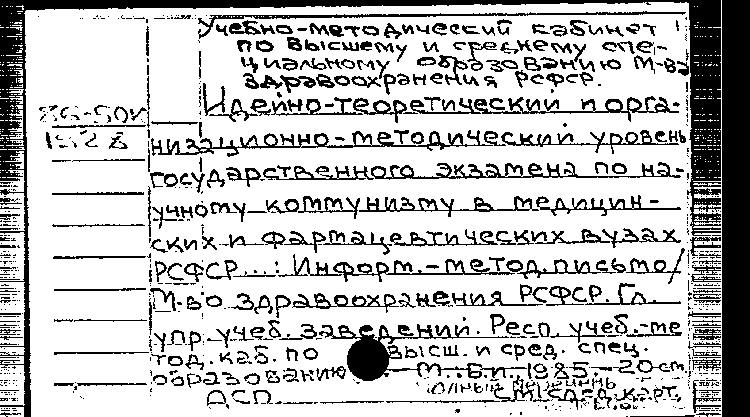 Учебно-методический кабинет
по высшему и среднему спе-
циальному образованию М-ва
здравоохранения РСФСР.
Идейно-теоретический и орга-
низационно-методический уровень
государственного экзамена по на-
учному коммунизму в медицин-
ских и фармацевтических вузах
РСФСР...: Информ.-метод. письмо/
М-во здравоохранения РСФСР. Гл.
упр. учеб. заведений. Респ. учеб.-ме
тод. каб. по высш. и сред. спец.
образованию. — М.: Б.и., 1985. — 20 см.
АСП. См. след. карт.